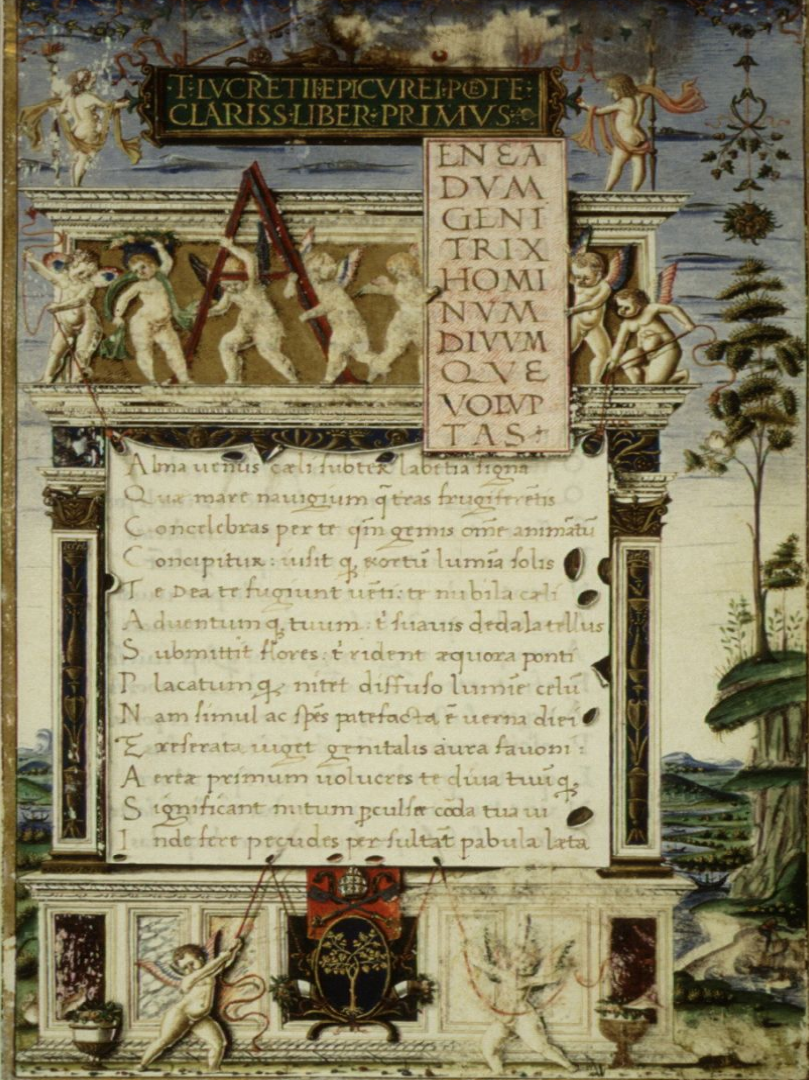 ·T·LVCRETII·EPICVREI·PŒTE·
CLARISS·LIBER·PRIMVS·
A
ENEA
DVM
GENI
TRIX
HOMI
NVM
DIVVM
QVE
VOLVP
TAS
Alma uenus cæli subter labētia signa
Quæ mare nauigium q̄ tēras frugiferētis
Concelebras per te qm̄ genus om̄e animātū
Concipitur: uisit q; exortū lumīa solis
Te Dea te fugiunt uēti: te nubila cæli
Aduentum q; tuum: t' suauis dedala tellus
Submittit flores: t' rident æquora ponti
Placatum q; nitet diffuso lumīe celū
Nam simul ac spēs patefacta ē uerna diei
Et reserata uiget genitalis aura fauoni:
Aereæ primum uolucres te diua tuū q;
Significant nutum ꝑculsæ cōda tua ui
Inde fere pecudes per sultāt pabula læta